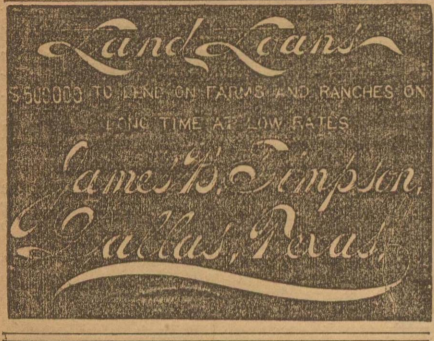 Land Loans
$500000 TO LEND ON FARMS AND RANCHES ON
LONG TIME AT LOW RATES
James B. Simpson,
Dallas, Texas.